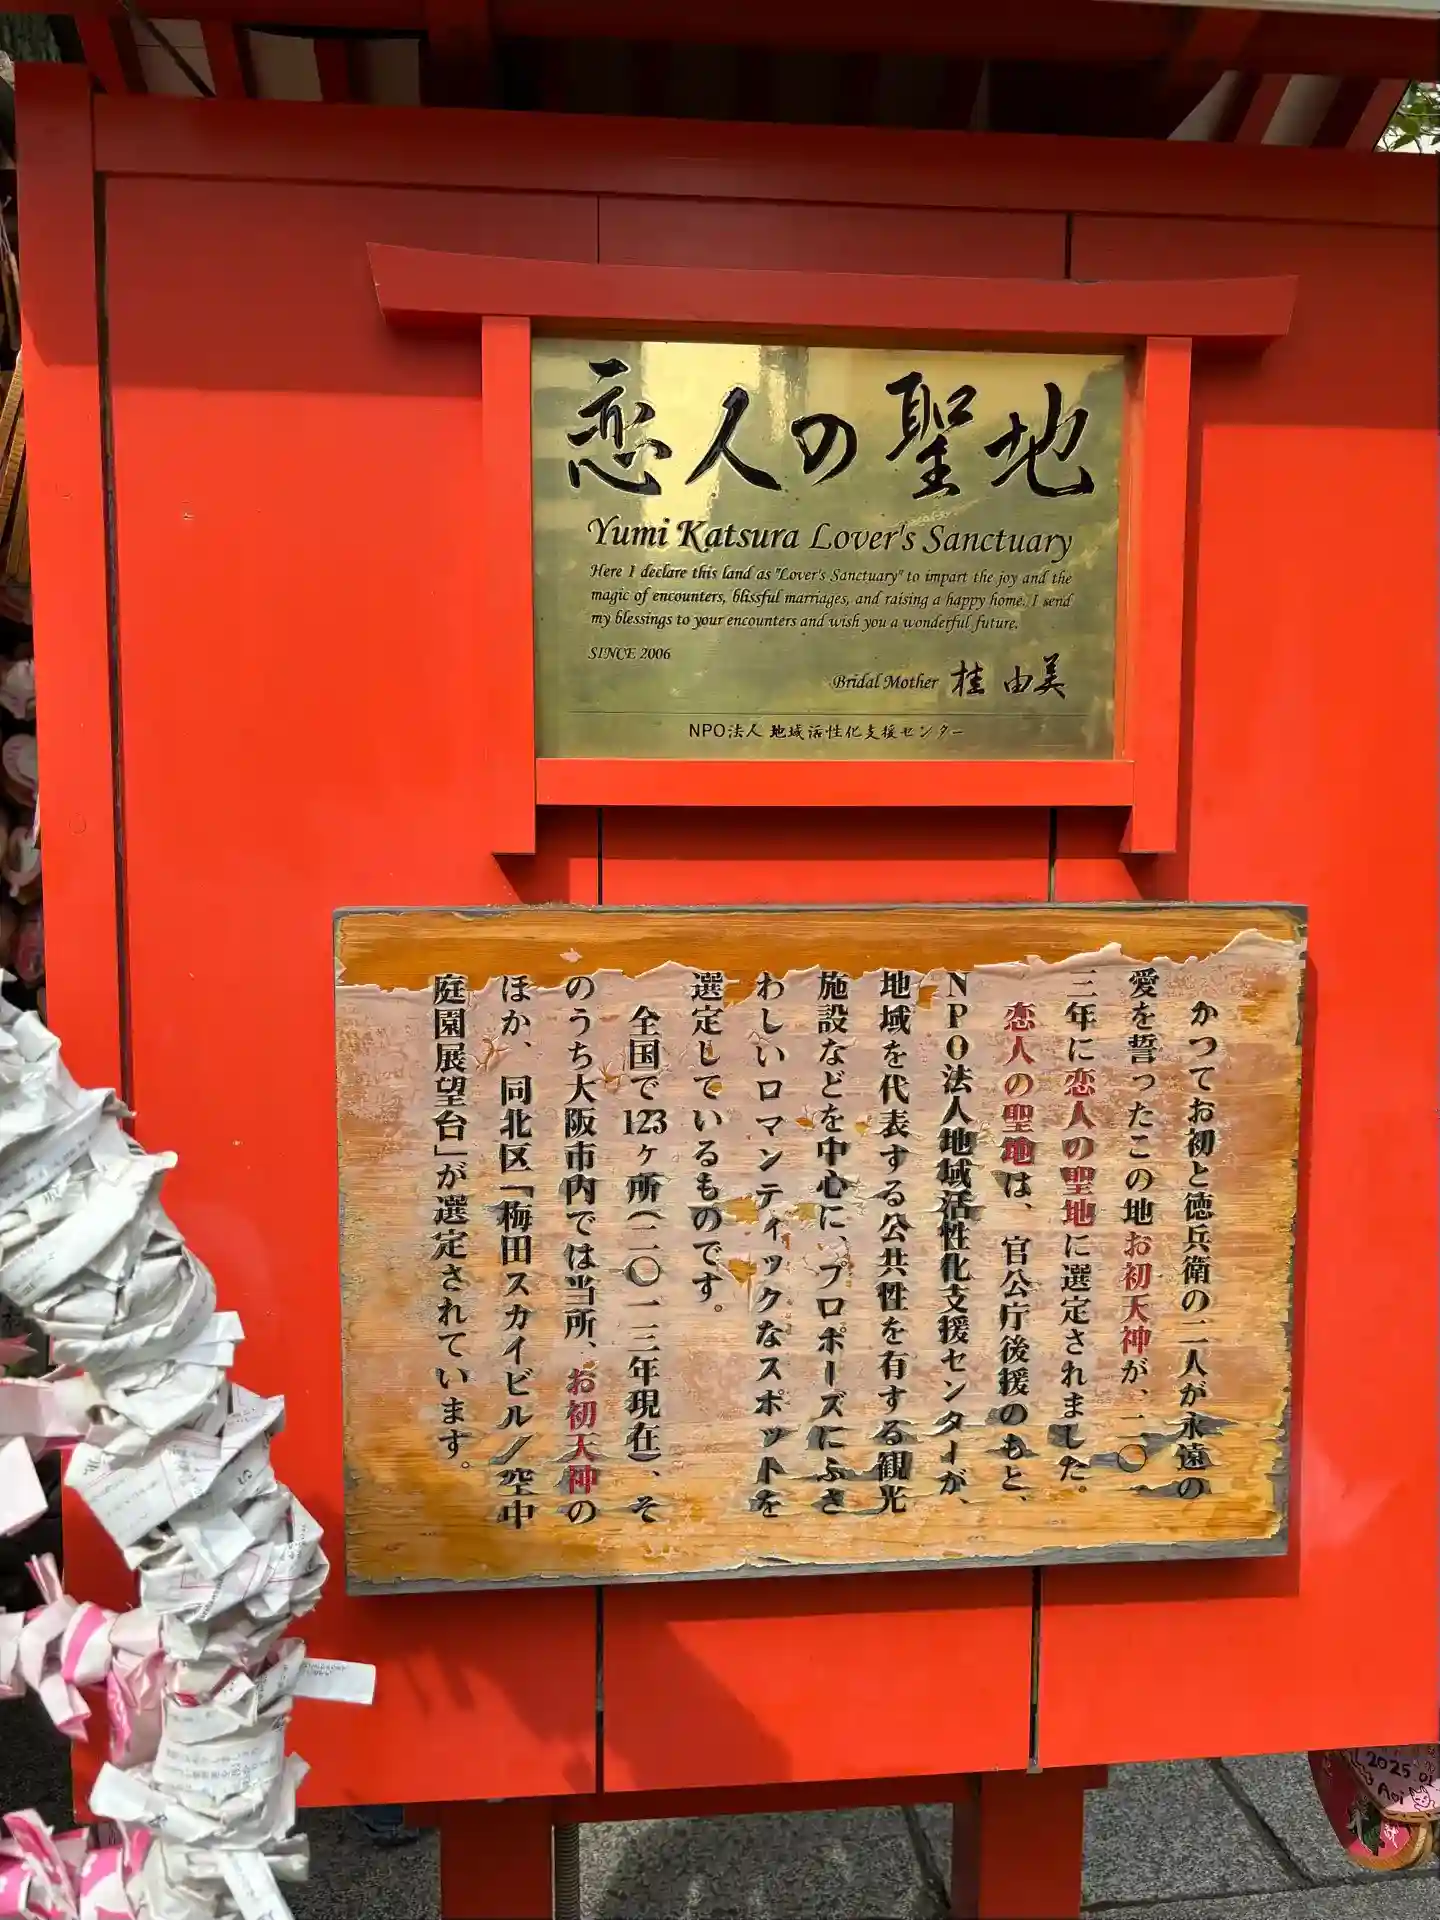 恋人の聖地
Yumi Katsura Lover's Sanctuary
Here I declare this land as "Lover's Sanctuary" to impart the joy and the
magic of encounters, blissful marriages, and raising a happy home. I send
my blessings to your encounters and wish you a wonderful future.
SINCE 2006
Bridal Mother 桂 由美
NPO法人 地域活性化支援センター
かつてお初と徳兵衛の二人が永遠の
愛を誓ったこの地お初天神が、二〇一
二年に恋人の聖地に選定されました。
恋人の聖地は、官公庁後援のもと、
NPO法人地域活性化支援センターが、
地域を代表する公共性を有する観光
施設などを中心に、プロポーズにふさ
わしいロマンティックなスポットを
選定しているものです。
全国で123ヶ所(二〇一三年現在)、そ
のうち大阪市内では当所、お初天神の
ほか、同北区「梅田スカイビル/空中
庭園展望台」が選定されています。
2025.01
Aoi